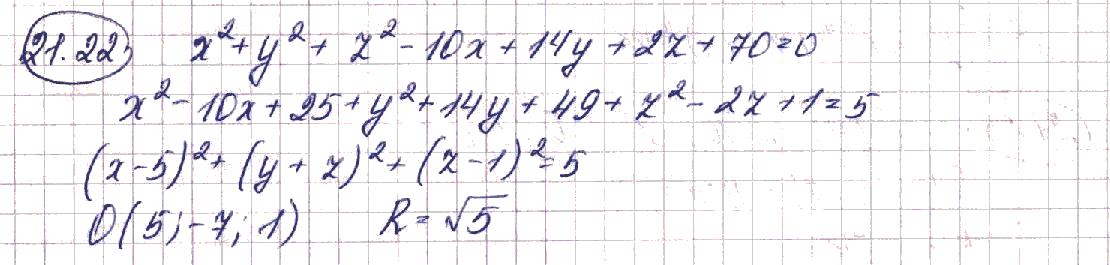 21.22. x² + y² + z² - 10x + 14y + 2z + 70 = 0
x² - 10x + 25 + y² + 14y + 49 + z² - 2z + 1 = 5
(x - 5)² + (y + z)² + (z - 1)² = 5
O(5; -7; 1) R = √5